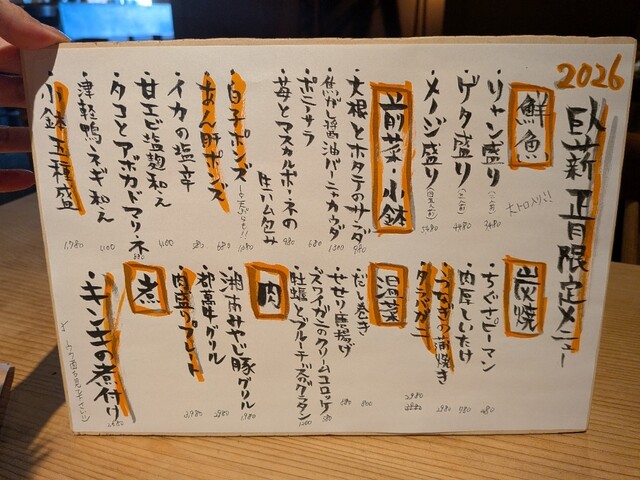 2026
臥薪 正月限定メニュー
鮮魚
・リャン盛り(二人前) 3480
・ゲタ盛り(三人前) 4480
・メージ盛り(四人前) 5480
大トロ入り!!
前菜・小鉢
・大根とホタテのサラダ 980
・焦がし醤油バーニャカウダ 1200
・ポテサラ 680
・苺とマスカルポーネの生ハム包み 980
・白子ポンズ 1080
・あん肝ポンズ 980
・イカの塩辛 580
・甘エビ塩麹和え 1100
・タコとアボカドマリーネ 880
・津軽鴨ネギ和え 1100
・小鉢五種盛 1,780
炭焼
・ちぐさピーマン 480
・肉厚しいたけ 980
・うなぎの蒲焼き 2980
・タラバガニ 2980
温菜
・だし巻き 800
・せせり唐揚げ 880
・ズワイガニのクリームコロッケ 580
・牡蠣とブルーチーズのグラタン 1200
肉
・湘南みやじ豚グリル 1,980
・都萬牛グリル 2980
・肉盛りプレート 3,980
煮
・キンキの煮付け 2680